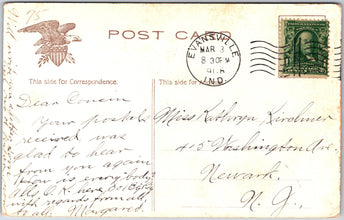 75
POST CARD
EVANSVILLE
MAR 3
8 30 PM
IND.
This side for Correspondence.
This side for
Dear Cousin
Your postal
received was
glad to hear
from you again
How is everybody?
All O.K. here
with regards from all,
Margaret
Miss Kathryn
415 Washington Ave.
Newark.
N. J.